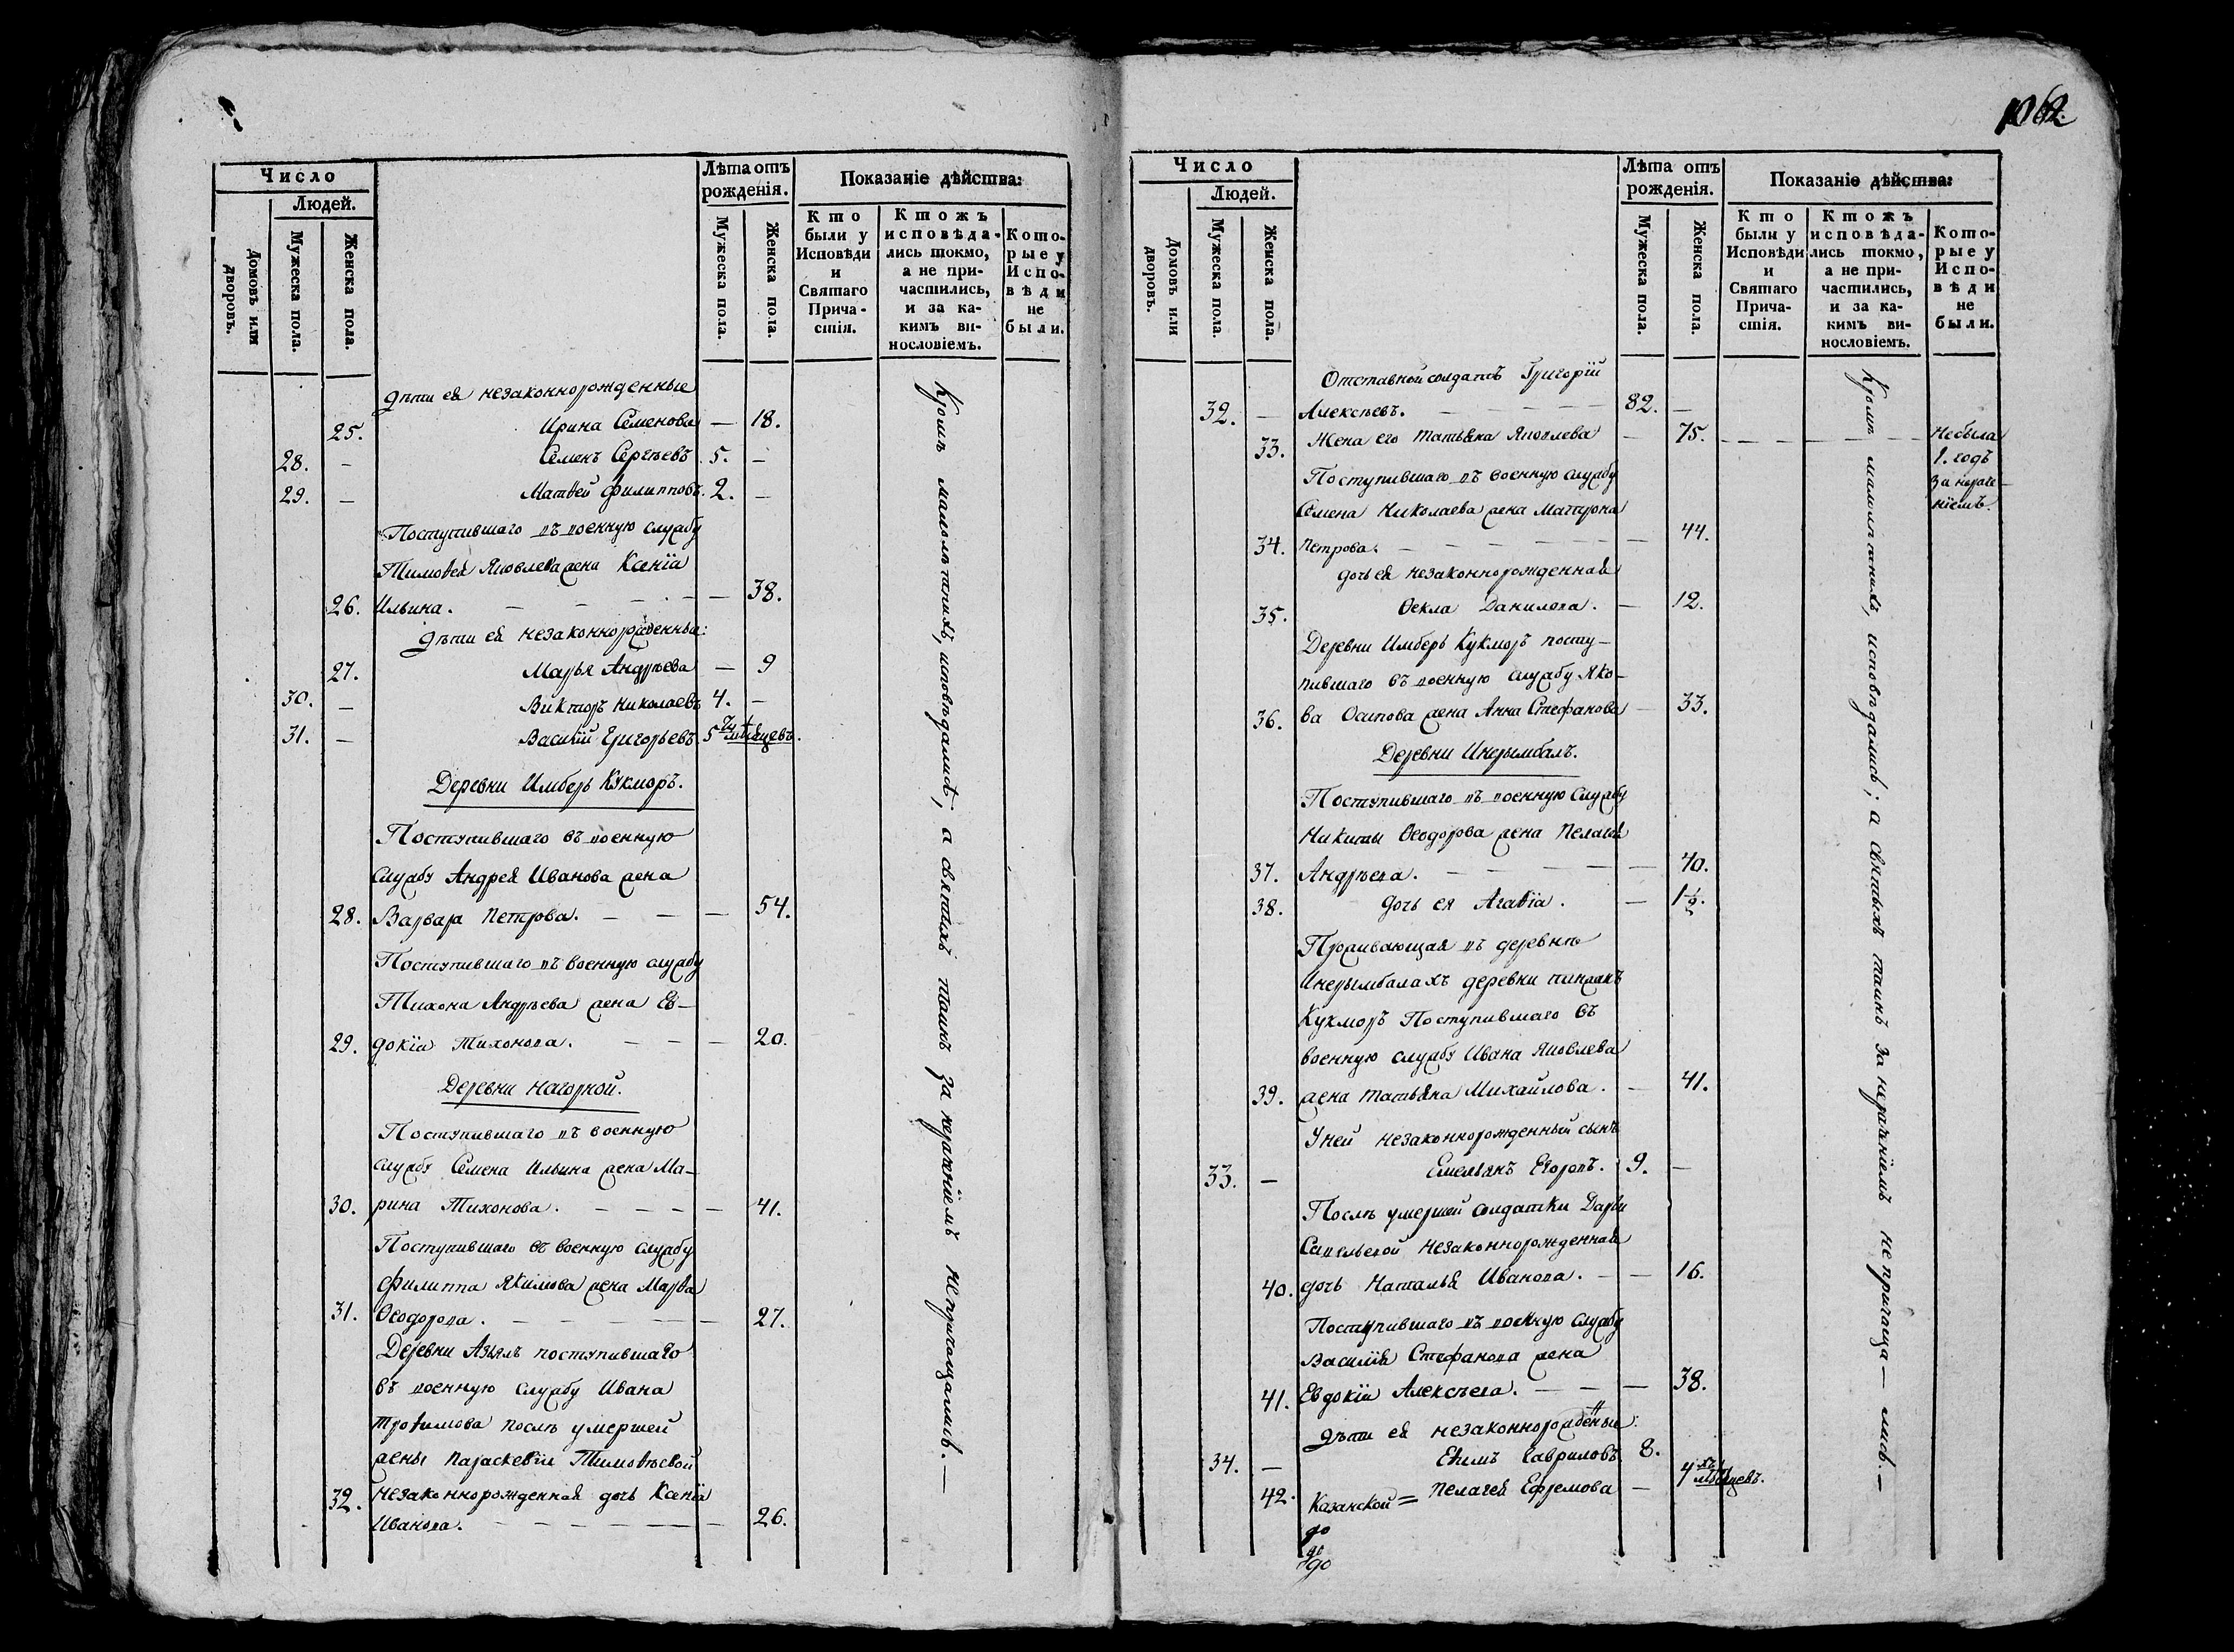 Число
Людей.
Домовъ или дворовъ.
Мужеска пола.
Женска пола.
Лѣта отъ рожденія.
Мужеска пола.
Женска пола.
Показаніе дѣйства:
Кто были у Исповѣди и Святаго Причастія.
Ктожъ исповѣдались токмо, а не причастились, и за какимъ винословіемъ.
Которые у Исповѣди не были.
дѣти ея незаконнорожденные
25. Ирина Семенова — 18.
28. — Семенъ Сергѣевъ 5. —
29. — Матвей Филипповъ. 2. —
Поступившаго въ военную службу
Тимоѳея Яковлева жена Ксенія
26. Ильина. — — — — — 38.
дѣти ея незаконнорожденныя:
27. Марья Андрѣева — 9
30. — Викторъ Николаевъ 4. —
31. — Василій Григорьевъ 5ти мѣсяцевъ.
Деревни Имберь Кукморъ.
Поступившаго въ военную
службу Андрея Иванова жена
28. Варвара Петрова. — — — 54.
Поступившаго въ военную службу
Тихона Андрѣева жена Ев-
29. докіа Тихонова. — — — 20.
Деревни Нагорной.
Поступившаго въ военную
службу Семена Ильина жена Ма-
30. рина Тихонова. — — — — 41.
Поступившаго въ военную службу
Филиппа Якимова жена Марѳа
31. Ѳеодорова. — — — — — 27.
Деревни Азьялъ поступившаго
въ военную службу Ивана
Троѳимова послѣ умершей
жены Параскевіи Тимоѳѣевой
32. незаконнорожденная дочь Ксенія
Иванова. — — — — — — 26.
Кромѣ малолѣтнихъ, исповѣдались; а святыхъ таинъ за нераченіемъ непричащались. —
162.
Число
Людей.
Домовъ или дворовъ.
Мужеска пола.
Женска пола.
Лѣта отъ рожденія.
Мужеска пола.
Женска пола.
Показаніе дѣйства:
Кто были у Исповѣди и Святаго Причастія.
Ктожъ исповѣдались токмо, а не причастились, и за какимъ винословіемъ.
Которые у Исповѣди не были.
Отставной солдатъ Григорій
32. — Алексѣевъ. — — — — — 82. —
33. Жена его Татьяна Яковлева — 75. — — — — — — Небыла
1. годъ
за нераче-
ніемъ.
Поступившаго въ военную службу
Семена Николаева жена Матрона
34. Петрова. — — — — — — 44.
дочь ея незаконнорожденная
35. Ѳекла Данилова. — 12.
Деревни Имберь Кукморъ посту-
пившаго въ военную службу Яко-
36. ва Осипова жена Анна Стефанова — 33.
Деревни Инерымбалъ.
Поступившаго въ военную службу
Никиты Ѳеодорова жена Пелагея
37. Андрѣева. — — — — — 40.
38. Дочь ея Агаѳіа. — 1½.
Проживающая въ деревнѣ
Инерымбалахъ деревни
Кукморъ Поступившаго въ
военную службу Ивана Яковлева
39. жена Татьяна Михайлова. — 41.
У ней незаконнорожденный сынъ
33. — Емельянъ Егоровъ. 9. —
Послѣ умершей солдатки Дарьи
Савельевой незаконнорожденная
40. дочь Наталья Иванова. — — 16.
Поступившаго въ военную службу
Василія Стефанова жена
41. Евдокіа Алексѣева. — — — 38.
дѣти ея незаконнорожденныя:
34. — Еѳимъ Гавриловъ 8.
42. Пелагея Ефремова — 4хъ мѣсяцевъ.
Казанской =
до
до
Кромѣ малолѣтнихъ, исповѣдались; а святыхъ таинъ за нераченіемъ непричаща — лись. —